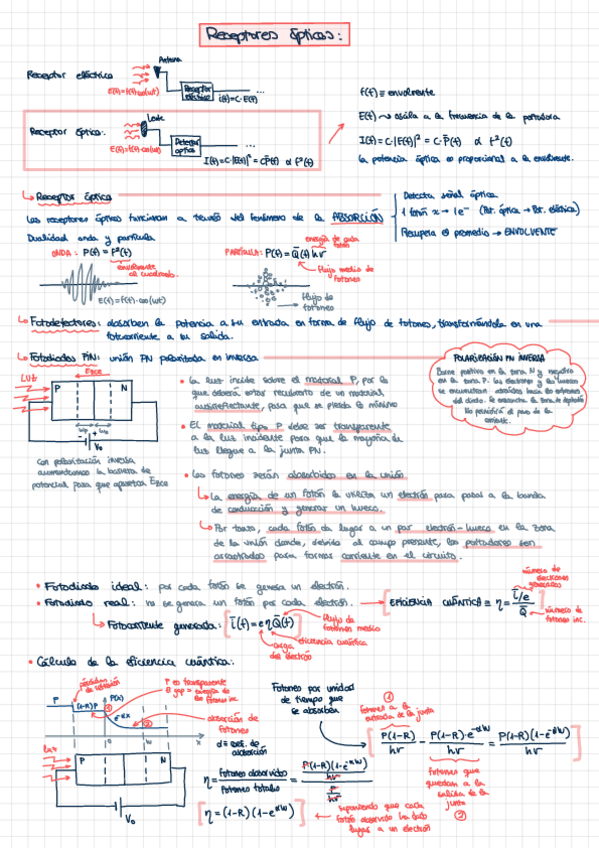 Receptores ópticos:
Antena
Receptor eléctrico
E(t)=f(t)·cos(ωt)
Receptor eléctrico
i(t)=C·E(t)
...
f(t) ≡ envolvente
Lente
Receptor óptico:
E(t)=f(t)·cos(ωt)
Detector óptico
...
I(t)=C·|E(t)|²=C·P(t) α f²(t)
E(t) → oscila a la frecuencia de la portadora
I(t)=C·|E(t)|² = C·P(t) α f²(t)
La potencia óptica es proporcional a la envolvente.
Receptor óptico
Los receptores ópticos funcionan a través del fenómeno de la ABSORCIÓN
Detecta señal óptica
1 fotón → 1e⁻ (Pot. óptica → Pot. eléctrica)
Recupera el promedio → ENVOLVENTE
Dualidad onda y partícula
ONDA: P(t) = f²(t)
envolvente al cuadrado.
E(t)=f(t)·cos(ωt)
PARTÍCULA: P(t)=Q̄(t) hν
energía de cada fotón
flujo medio de fotones
flujo de fotones
Fotodetectores: absorben la potencia a su entrada en forma de flujo de fotones, transformándola en una
fotocorriente a su salida.
Fotodiodos PIN: unión PN polarizada en inversa
LUZ
P
N
V₀
Con polarización inversa
aumentamos la barrera de
potencial para que aparezca
POLARIZACIÓN PN INVERSA
Borne positivo en la zona N y negativo
en la zona P. Los electrones y los huecos
se encuentran atraídos hacia los extremos
del diodo. Se ensancha la zona de deplexión
No permitirá el paso de la
corriente.
• La luz incide sobre el material P, por lo
que deberá estar recubierto de un material
antirreflectante, para que se pierda lo mínimo
• El material tipo P debe ser transparente
a la luz incidente para que la mayoría de
luz llegue a la junta PN.
• Los fotones serán absorbidos en la unión
La energía de un fotón la usará un electrón para pasar a la banda
de conducción y generar un hueco.
Por tanto, cada fotón da lugar a un par electrón-hueco en la zona
de la unión donde, debido al campo presente, los portadores son
arrastrados para formar corriente en el circuito.
• Fotodiodo ideal: por cada fotón se genera un electrón.
• Fotodiodo real: no se genera un fotón por cada electrón.
EFICIENCIA CUÁNTICA ≡ η = (ī/e)/Q̄
número de electrones generados
número de fotones inc.
Fotocorriente generada: [ī(t) = e η Q̄(t)]
flujo de fotones medio
eficiencia cuántica
carga del electrón
• Cálculo de la eficiencia cuántica:
pérdidas de reflexión
P
(1-R)P
P(x)
e^-αx
0
W
x
P es transparente
E gap > energía de los fotones inc.
absorción de fotones
α ≡ coef. de absorción
luz
P
N
V₀
Fotones por unidad
de tiempo que
se absorben
①
fotones a la entrada de la junta
[P(1-R)/hν - P(1-R)·e^-αW/hν = P(1-R)(1-e^-αW)/hν]
fotones que quedan a la salida de la junta
②
η = fotones absorbidos/fotones totales = (P(1-R)(1-e^-αW)/hν)/(P/hν)
[η = (1-R)(1-e^-αW)]
suponiendo que cada
fotón absorbido ha dado
lugar a un electrón